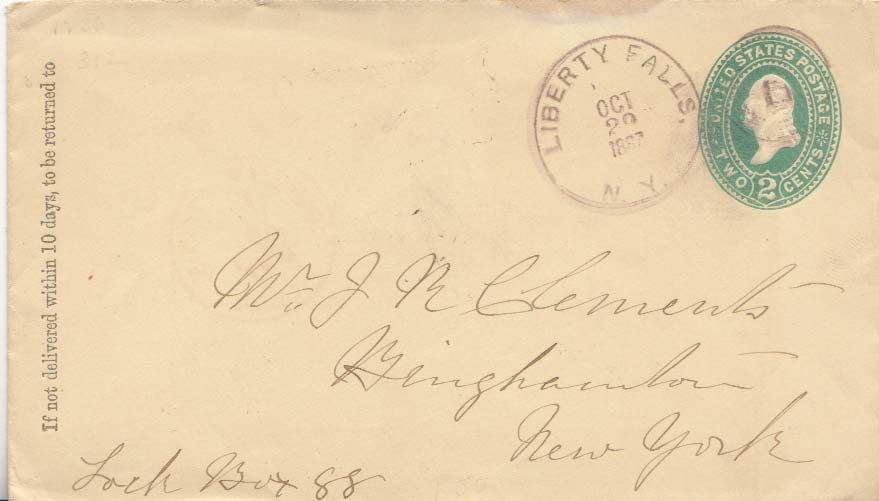 If not delivered within 10 days, to be returned to
LIBERTY FALLS,
OCT
29
1887
N. Y.
UNITED STATES POSTAGE
TWO 2 CENTS
Mr. J N Clements
Binghamton
New York
Lock Box 88